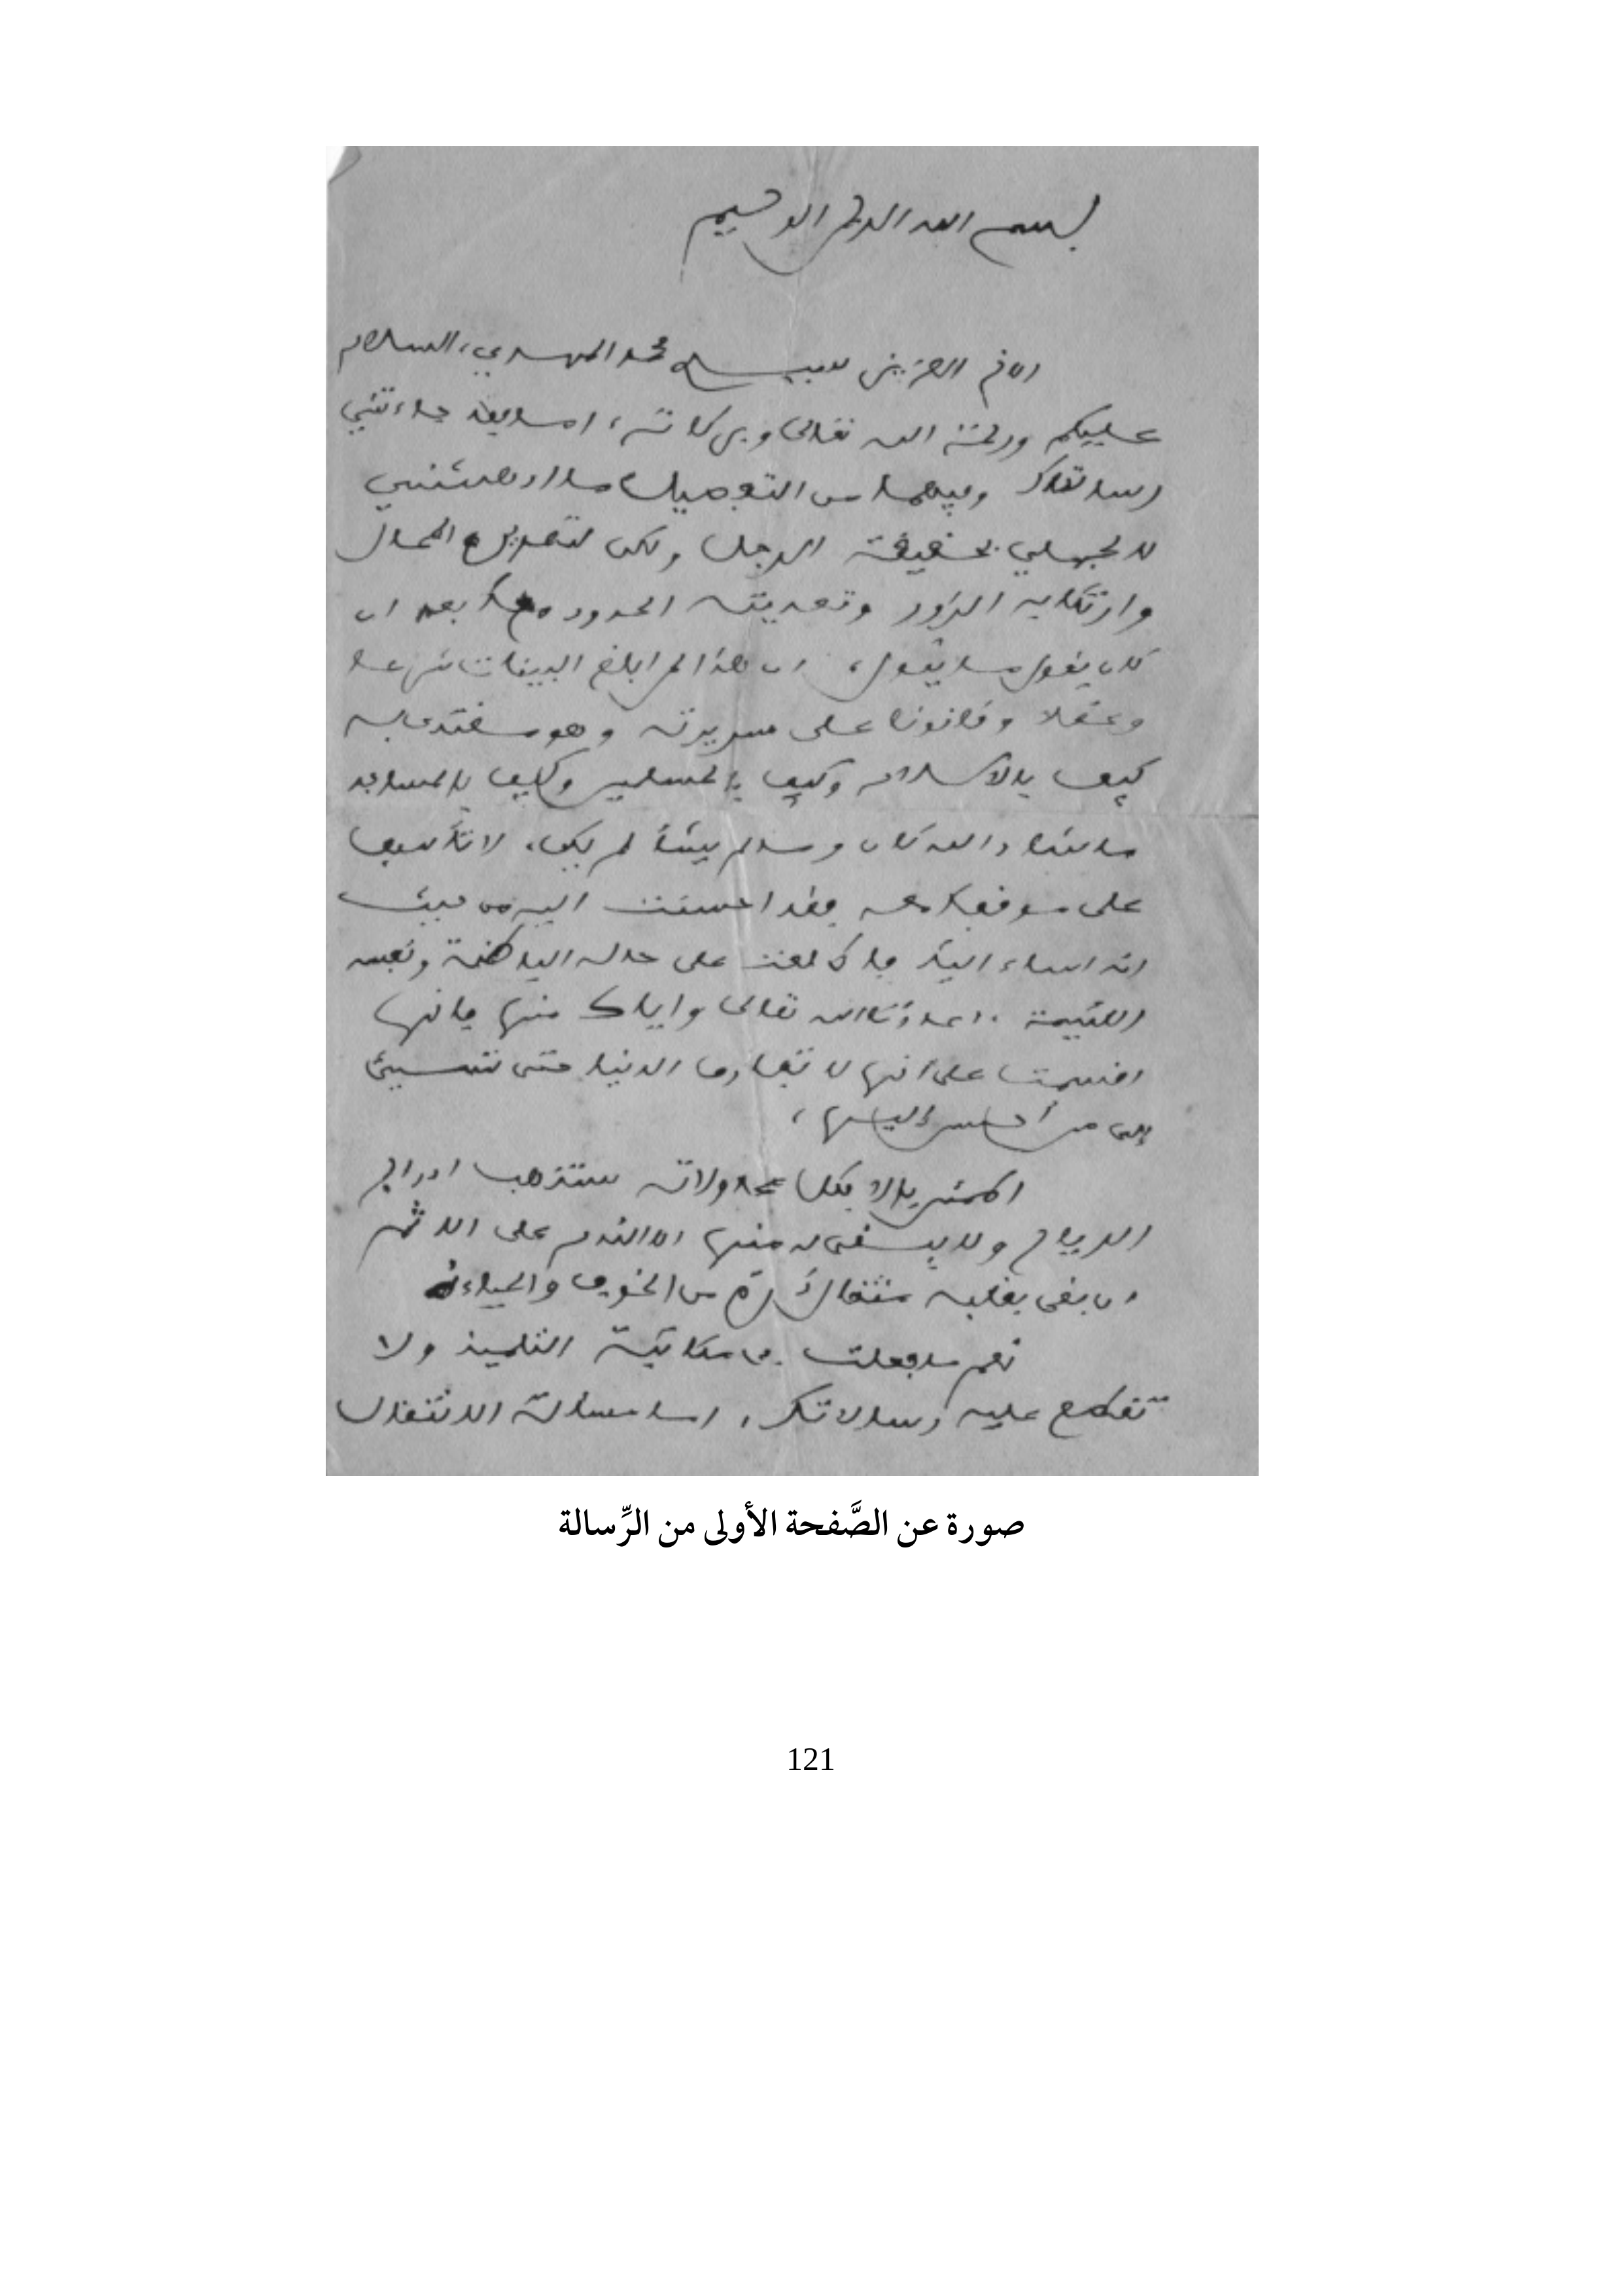 بسم الله الرحمن الرحيم
الاخ العزيز الشيخ محمد المهدي، السلام
عليكم ورحمة الله تعالى وبركاته، اما بعد جاءتني
رسالتك وفيها من التفصيل ما ادهشني
لا لجهلي بحقيقة الرجل ولكن لتصريح المحال
وارتكابه الزور وتعديته الحدود معك بعد ان
كان يقول ما يقول، ان هذا لمن ابلغ البينات شرعا
وعقلا وقانونا على سريرته وهو
كيف بالاسلام وكيف بالمسلمين وكيف بالمساجد
ما شاء الله كان وما لم يشأ لم يكن، لا تأسف
على موقفك معه فقد احسنت اليه من حيث
انه اساء اليك فاطلعت على حاله الباطنة ونفسه
اللئيمة. اعاذنا الله تعالى واياك منها فانها
اقسمت على أنها لا تفارق الدنيا حتى تسيئ
إلى من أحسن إليها،
اطمئن بالا فكل محاولاته ستذهب ادراج
الرياح ولا يبقى له منها الا الندم على الاثم
ان بقي بقلبه مثقال ذرة من الخوف والحياء
نعم ما فعلت في مكاتبة التلميذ ولا
تقطع عليه رسالاتك، اما مسألة الانتقال
صورة عن الصَّفحة الأولى من الرِّسالة
121